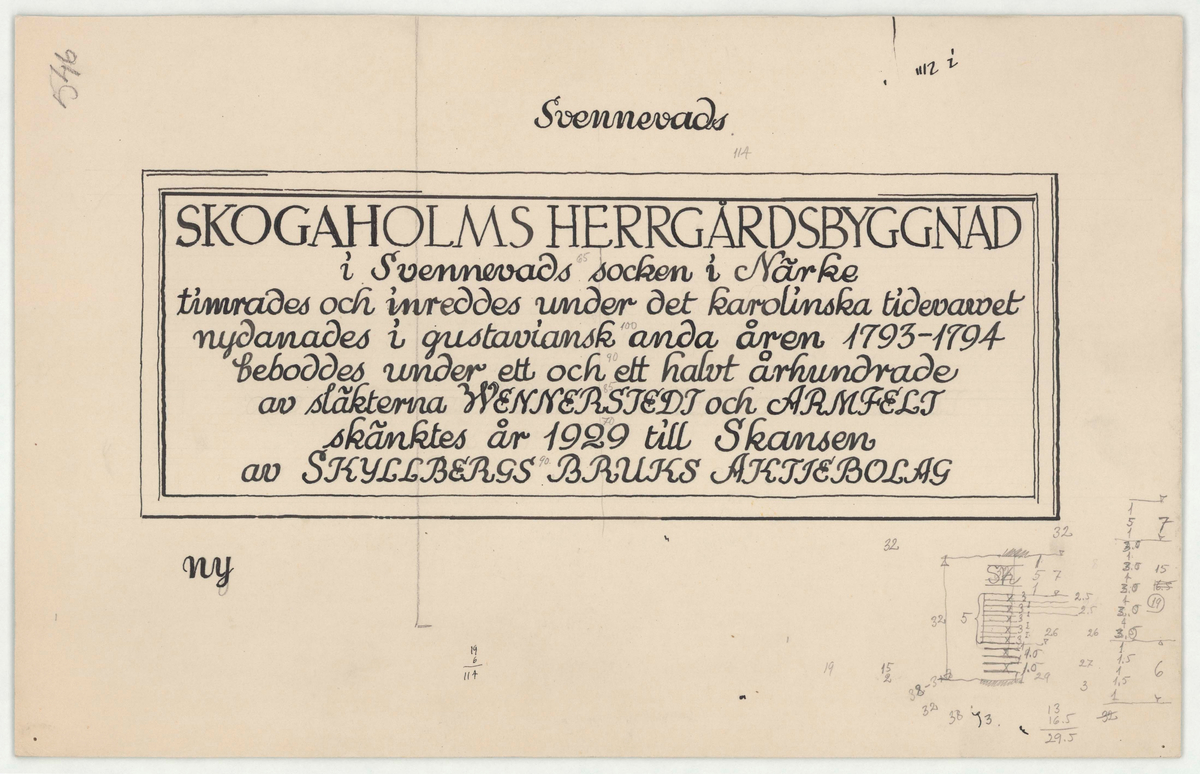 546
1112 i
Svennevads
114
SKOGAHOLMS HERRGÅRDSBYGGNAD
i Svennevads socken i Närke
timrades och inreddes under det karolinska tidevarvet
nydanades i gustaviansk anda åren 1793-1794
beboddes under ett och ett halvt århundrade
av släkterna WENNERSTEDT och ARMFELT
skänktes år 1929 till Skansen
av SKYLLBERGS BRUKS AKTIEBOLAG
ny
32
32
32
5
26
26
27
29
3
19
6
114
19
15
2
38
32
38
13
16.5
29.5
7
15
19
6